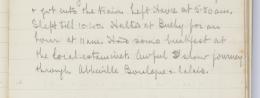 & got into the train. Left Havre at 5.30 a.m.
Slept till 10. Halted at Buchy for an
hour at 11 a.m. Had some breakfast at
the local estaminet. Awful slow journey
through Abbeville Boulogne & Calais.